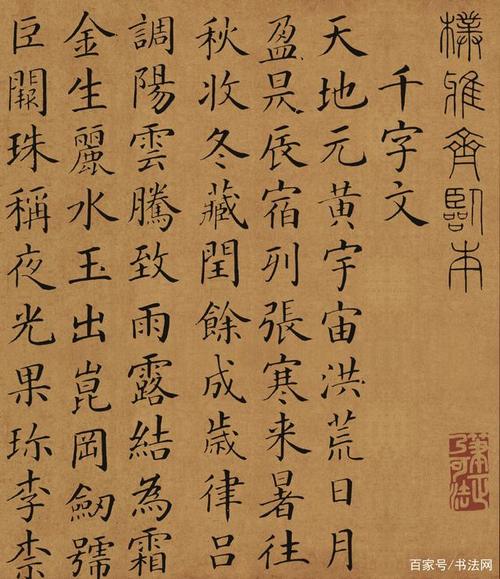 樸雅齋臨本
千字文
天地元黃宇宙洪荒日月
盈昃辰宿列張寒来暑往
秋收冬藏閏餘成歲律吕
調陽雲騰致雨露結為霜
金生麗水玉出崑岡劒號
巨闕珠稱夜光果珎李柰
百家号/书法网